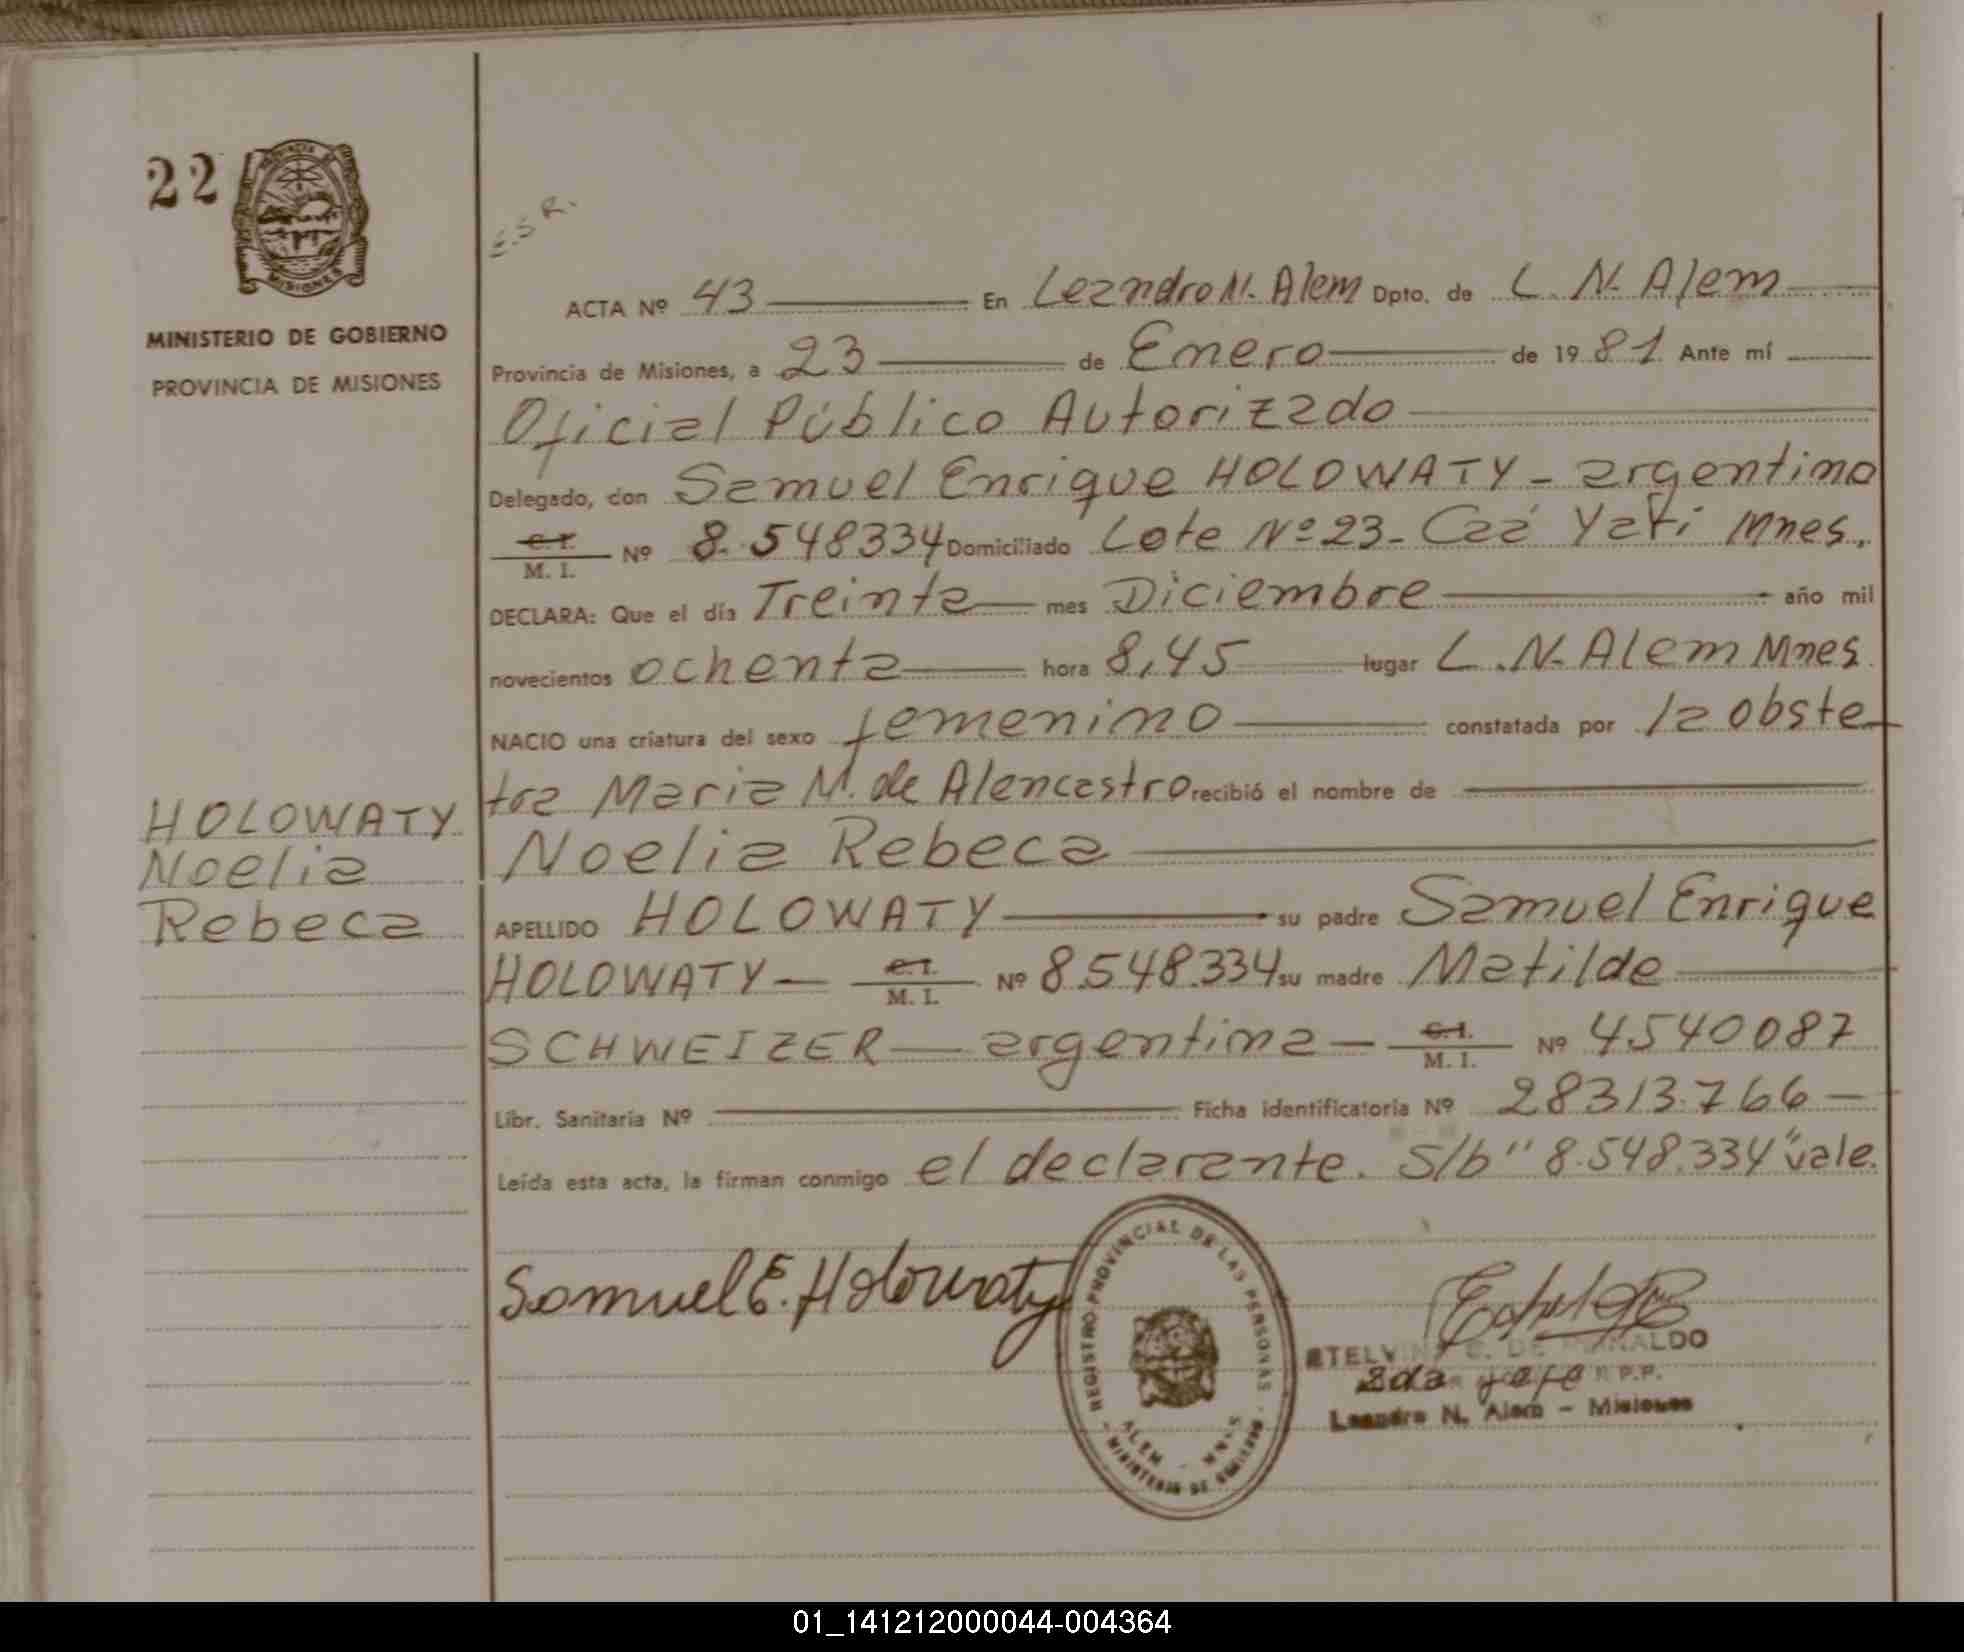 22
PROVINCIA DE
MISIONES
MINISTERIO DE GOBIERNO
PROVINCIA DE MISIONES
E.S.R.
ACTA Nº 43 En Leandro N. Alem Dpto. de L. N. Alem
Provincia de Misiones, a 23 de Enero de 1981 Ante mí
Oficial Público Autorizado
Delegado, don Samuel Enrique HOLOWATY - argentino
C. I.
M. I. Nº 8.548334 Domiciliado Lote Nº 23 - Caá Yarí Mnes.
DECLARA: Que el día Treinta mes Diciembre año mil
novecientos ochenta hora 8,45 lugar L. N. Alem Mnes.
NACIO una criatura del sexo femenino constatada por la obste
tra Maria M. de Alencastro recibió el nombre de
Noelia Rebeca
HOLOWATY
Noelia
Rebeca
APELLIDO HOLOWATY su padre Samuel Enrique
HOLOWATY - C. I.
M. I. Nº 8.548.334 su madre Matilde
SCHWEIZER - argentina - C. I.
M. I. Nº 4540087
Libr. Sanitaria Nº Ficha identificatoria Nº 28313.766 -
Leída esta acta, la firman conmigo el declarante. S/b "8.548.334" vale.
Samuel E. Holowaty
REGISTRO PROVINCIAL DE LAS PERSONAS
ALEM - MNES
MINISTERIO DE GOBIERNO
2da Jefe R.P.P.
Leandro N. Alem - Misiones
01_141212000044-004364